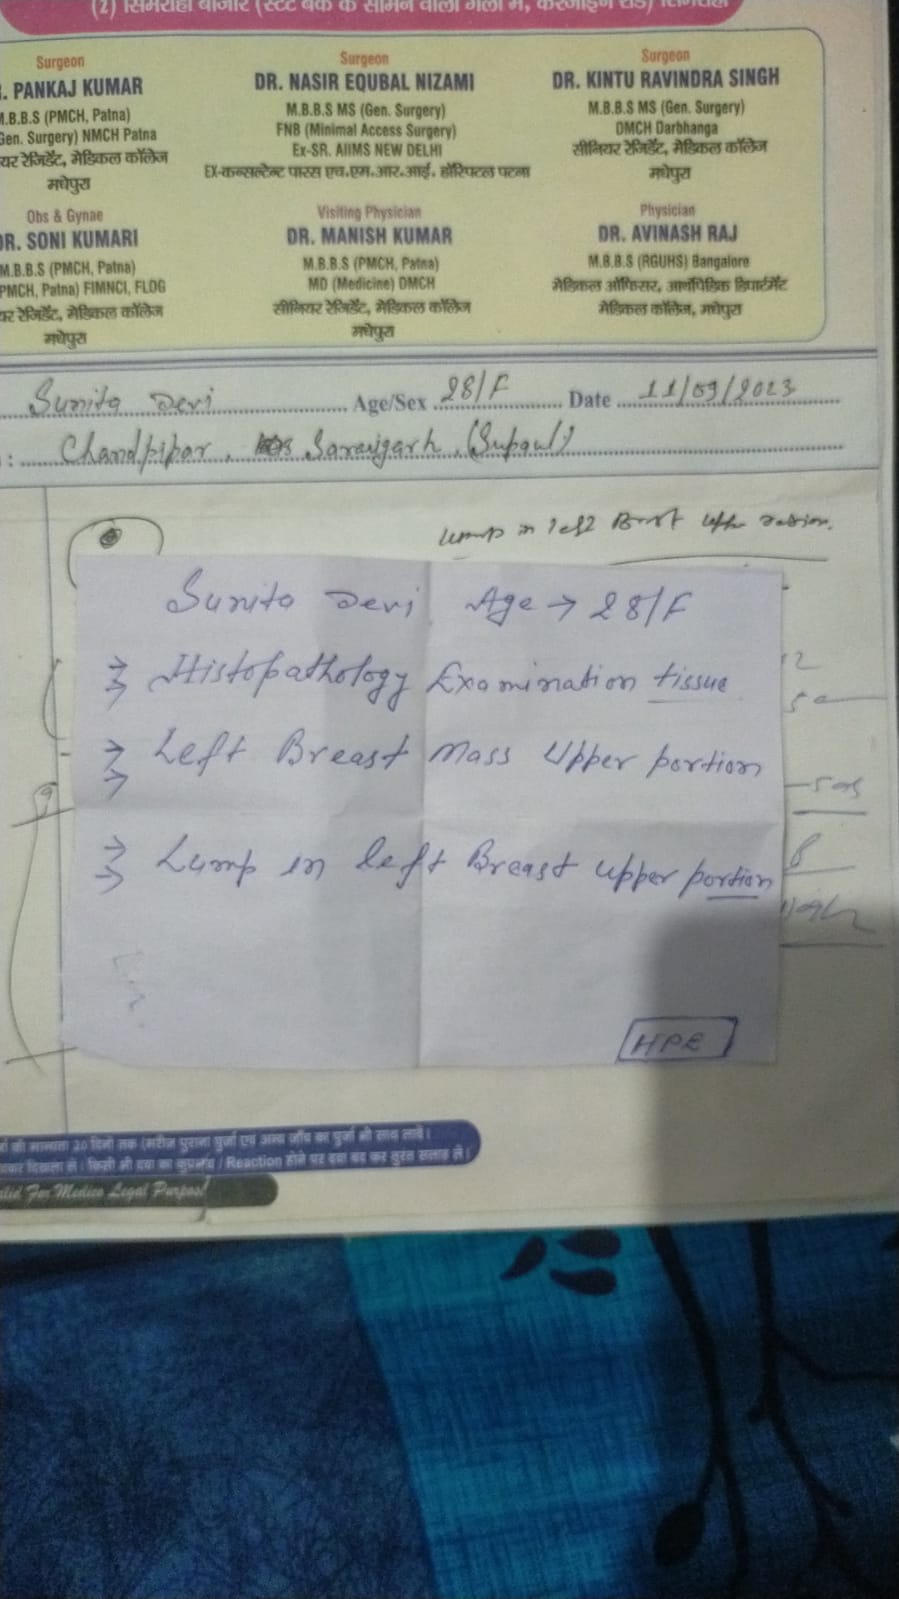 (2) सिमराही बाजार (स्टेट बैंक के सामने वाली गली में, करजाईन रोड) सिमराही
Surgeon
. PANKAJ KUMAR
M.B.B.S (PMCH, Patna)
Gen. Surgery) NMCH Patna
यर रेजिडेंट, मेडिकल कॉलेज
मधेपुरा
Surgeon
DR. NASIR EQUBAL NIZAMI
M.B.B.S MS (Gen. Surgery)
FNB (Minimal Access Surgery)
Ex-SR. AIIMS NEW DELHI
EX-कन्सल्टेन्ट पारस एच.एम.आर.आई. हॉस्पिटल पटना
Surgeon
DR. KINTU RAVINDRA SINGH
M.B.B.S MS (Gen. Surgery)
DMCH Darbhanga
सीनियर रेजिडेंट, मेडिकल कॉलेज
मधेपुरा
Obs & Gynae
DR. SONI KUMARI
M.B.B.S (PMCH, Patna)
PMCH, Patna) FIMNCI, FLOG
यर रेजिडेंट, मेडिकल कॉलेज
मधेपुरा
Visiting Physician
DR. MANISH KUMAR
M.B.B.S (PMCH, Patna)
MD (Medicine) DMCH
सीनियर रेजिडेंट, मेडिकल कॉलेज
मधेपुरा
Physician
DR. AVINASH RAJ
M.B.B.S (RGUHS) Bangalore
मेडिकल ऑफिसर, आर्थोपेडिक डिपार्टमेंट
मेडिकल कॉलेज, मधेपुरा
Sunita Devi Age/Sex 28/F Date 11/09/2023
: Chandpipar, Saraigarh, (Supaul)
Lump in left Breast upper
Sunita Devi Age → 28/F
⇒ Histopathology Examination tissue
⇒ Left Breast Mass Upper portion
⇒ Lump in left Breast upper portion
HPE
की मान्यता 20 दिनों तक (मरीज पुराना पुर्जा एवं अन्य जाँच का पुर्जा भी साथ लावें।
दिखला लें। किसी भी दवा का कुप्रभाव / Reaction होने पर दवा बंद कर तुरंत सलाह लें।
alid For Medico Legal Purpos